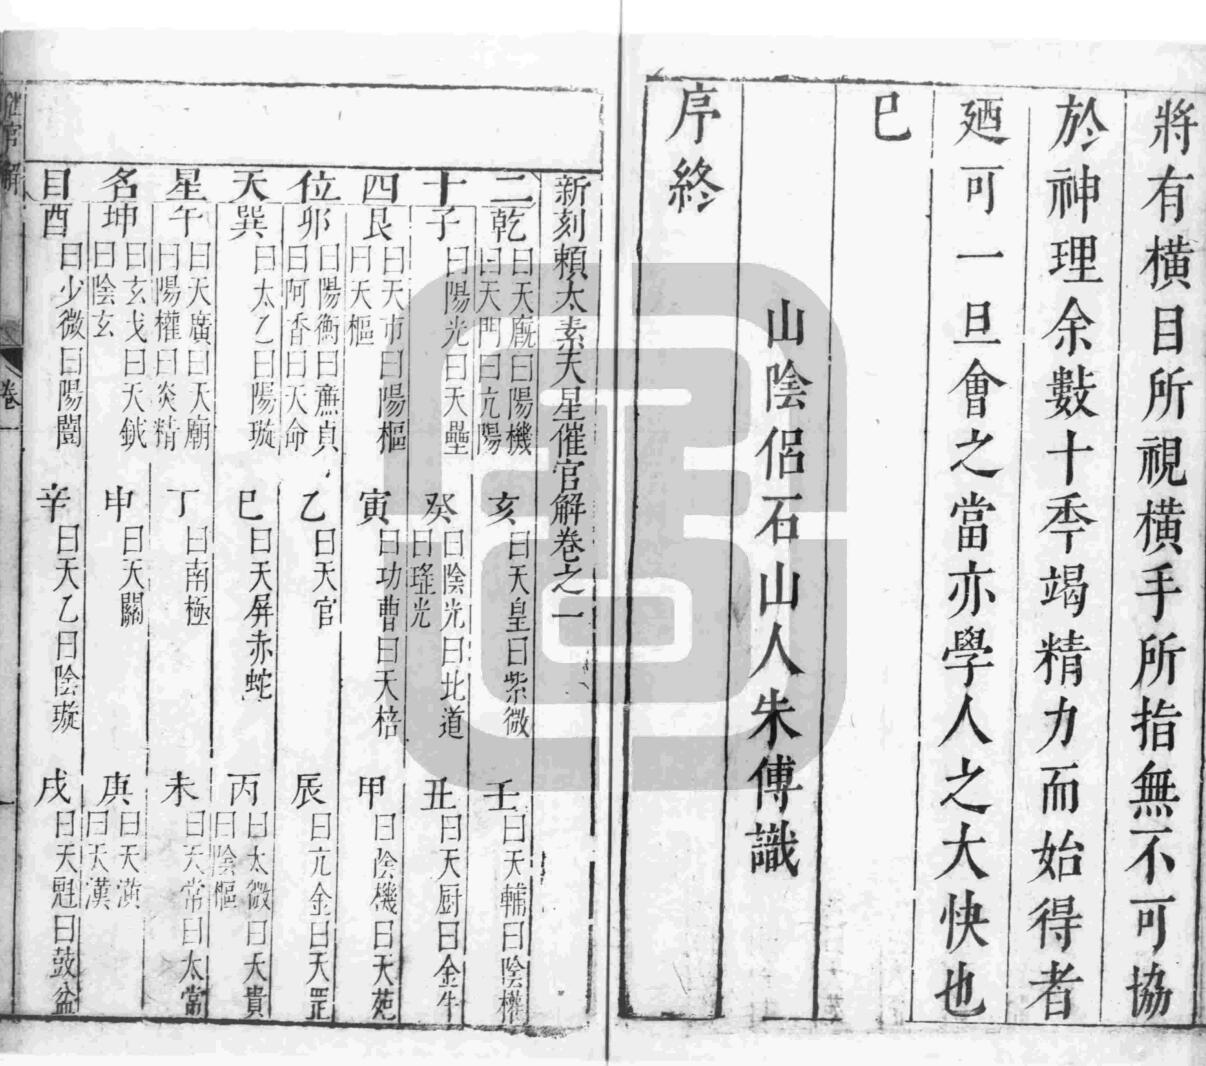 將有橫目所視橫手所指無不可協
於神理余數十秊竭精力而始得者
廼可一旦會之當亦學人之大快也
已
山陰侶石山人朱傅識
序終
新刻賴太素天星催官解卷之一
二十四位天星名目
乾 曰天廐曰陽機曰天門曰亢陽
亥 曰天皇曰紫微
壬 曰天輔曰陰權
子 曰陽光曰天壘
癸 曰陰光曰北道曰瑤光
丑 曰天厨曰金牛
艮 曰天市曰陽樞曰天樞
寅 曰功曹曰天棓
甲 曰陰機曰天苑
卯 曰陽衡曰廉貞曰阿香曰天命
乙 曰天官
辰 曰亢金曰天罡
巽 曰太乙曰陽璇
巳 曰天屏赤蛇
丙 曰太微曰天貴曰陰樞
午 曰天廣曰天廟曰陽權曰炎精
丁 曰南極
未 曰天常曰太常
坤 曰玄戈曰天鉞曰陰玄
申 曰天關
庚 曰天潢曰天漢
酉 曰少微曰陽闓
辛 曰天乙曰陰璇
戌 曰天魁曰鼓盆
催官解
卷一